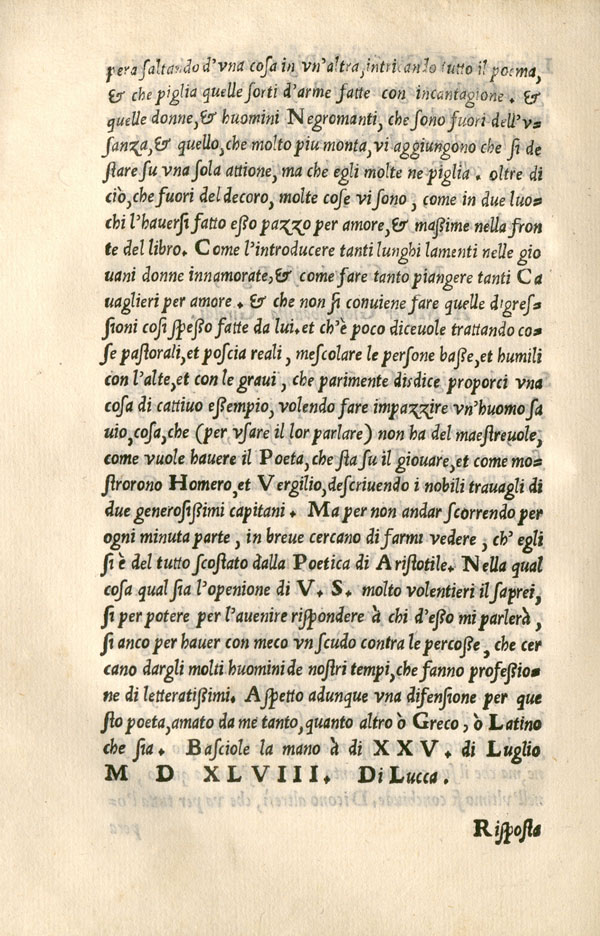 pera ſaltando d'vna coſa in vn'altra, intricando tutto il poema,
& che piglia quelle ſorti d'arme fatte con incantagione. &
quelle donne, & huomini Negromanti, che ſono fuori dell'v=
ſanza, & quello, che molto piu monta, vi aggiungono che ſi de
ſtare ſu vna ſola attione, ma che egli molte ne piglia. oltre di
ciò, che fuori del decoro, molte coſe vi ſono, come in due luo=
chi l'hauerſi fatto eßo pazzo per amore, & maßime nella fron
te del libro. Come l'introducere tanti lunghi lamenti nelle gio
uani donne innamorate, & come fare tanto piangere tanti Ca
uaglieri per amore. & che non ſi conuiene fare quelle digreſ=
ſioni coſi ſpeßo fatte da lui. et ch'è poco diceuole trattando co=
ſe paſtorali, et poſcia reali, meſcolare le perſone baße, et humili
con l'alte, et con le graui, che parimente diſdice proporci vna
coſa di cattiuo eßempio, volendo fare impazzire vn'huomo ſa
uio, coſa, che (per vſare il lor parlare) non ha del maeſtreuole,
come vuole hauere il Poeta, che ſta ſu il giouare, et come mo=
ſtrorono Homero, et Vergilio, deſcriuendo i nobili trauagli di
due generoſißimi capitani. Ma per non andar ſcorrendo per
ogni minuta parte, in breue cercano di farmi vedere, ch'egli
ſi è del tutto ſcoſtato dalla Poetica di Ariſtotile. Nella qual
coſa qual ſia l'openione di V. S. molto volentieri il ſaprei,
ſi per potere per l'auenire riſpondere à chi d'eßo mi parlerà,
ſi anco per hauer con meco vn ſcudo contra le percoße, che cer
cano dargli molti huomini de noſtri tempi, che fanno profeßio=
ne di letteratißimi. Aſpetto adunque vna difenſione per que
ſto poeta, amato da me tanto, quanto altro ò Greco, ò Latino
che ſia. Baſciole la mano à di XXV. di Luglio
M D XLVIII. Di Lucca.
Riſpoſta